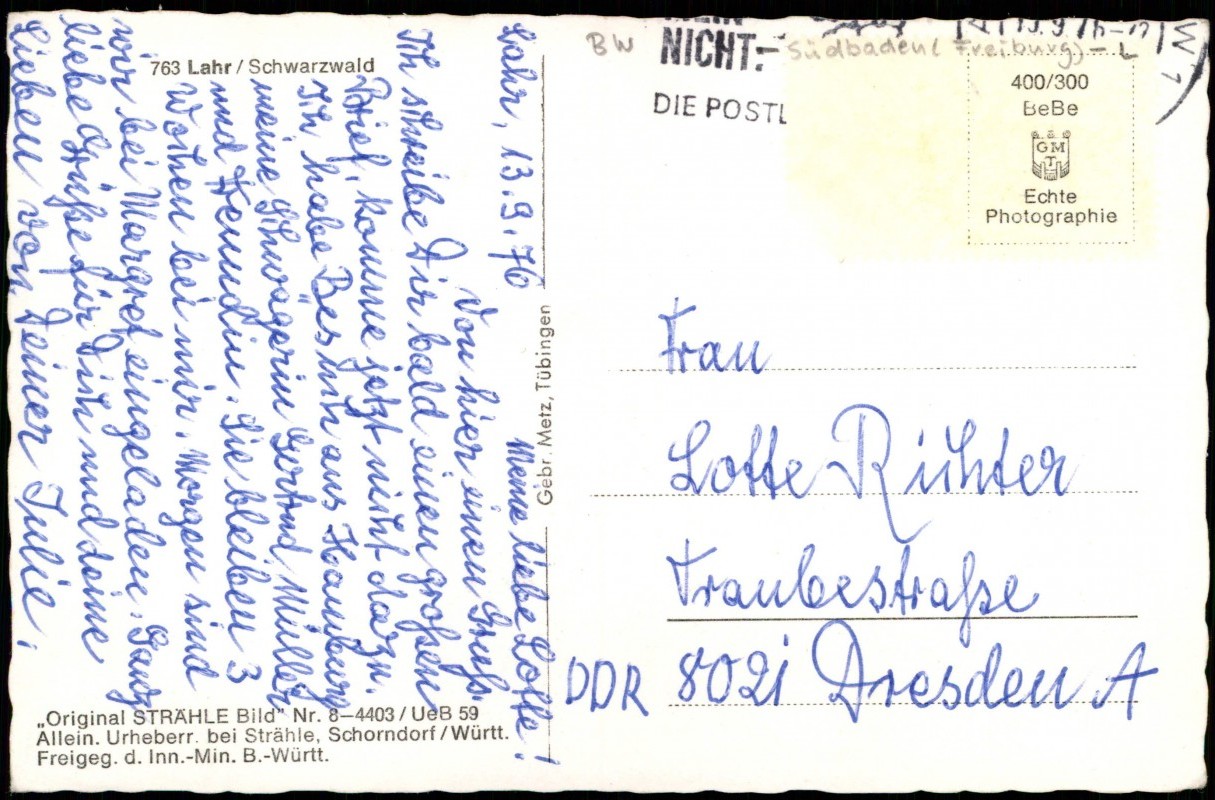 763 Lahr / Schwarzwald
Lahr, 13.9.76
Meine liebe Lotte!
Von hier einen Gruß.
Ich schreibe Dir bald einen großen
Brief, komme jetzt nicht dazu.
Ich habe Besuch aus Hamburg
meine Schwägerin Gertrud Müller
und Freundin. Sie bleiben 3
Wochen bei mir. Morgen sind
wir bei Margret eingeladen. Ganz
liebe Grüße für Dich und deine
Lieben von Deiner Julie.
„Original STRÄHLE Bild" Nr. 8–4403 / UeB 59
Allein. Urheberr. bei Strähle, Schorndorf / Württ.
Freigeg. d. Inn.-Min. B.-Württ.
Gebr. Metz, Tübingen
BW
Südbaden (Freiburg) – L
NICHT:
DIE POSTL
400/300
BeBe
GMT
Echte
Photographie
Frau
Lotte Richter
Traubestraße
DDR 8021 Dresden A